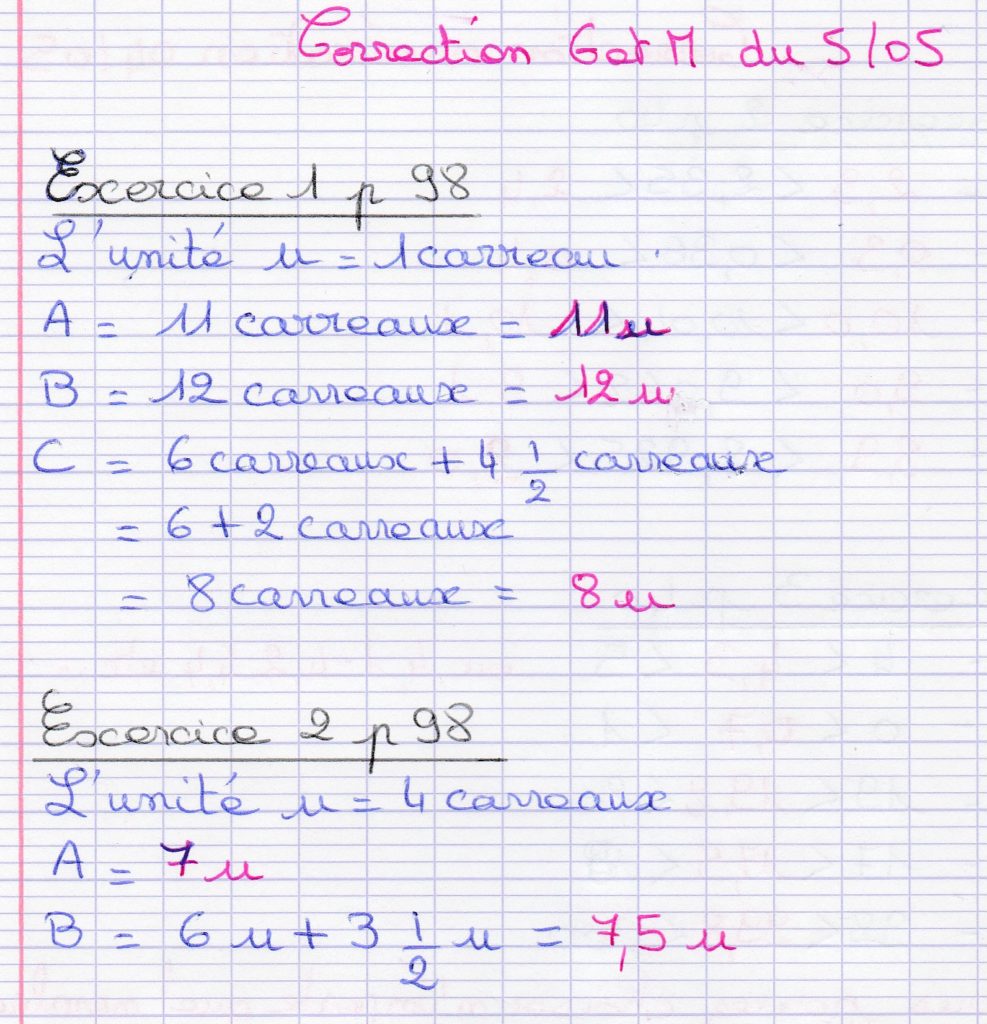 Correction G et M du 5/05
Exercice 1 p 98
L'unité u = 1 carreau
A = 11 carreaux = 11 u
B = 12 carreaux = 12 u
C = 6 carreaux + 4 1/2 carreaux
= 6 + 2 carreaux
= 8 carreaux = 8 u
Exercice 2 p 98
L'unité u = 4 carreaux
A = 7 u
B = 6 u + 3 1/2 u = 7,5 u